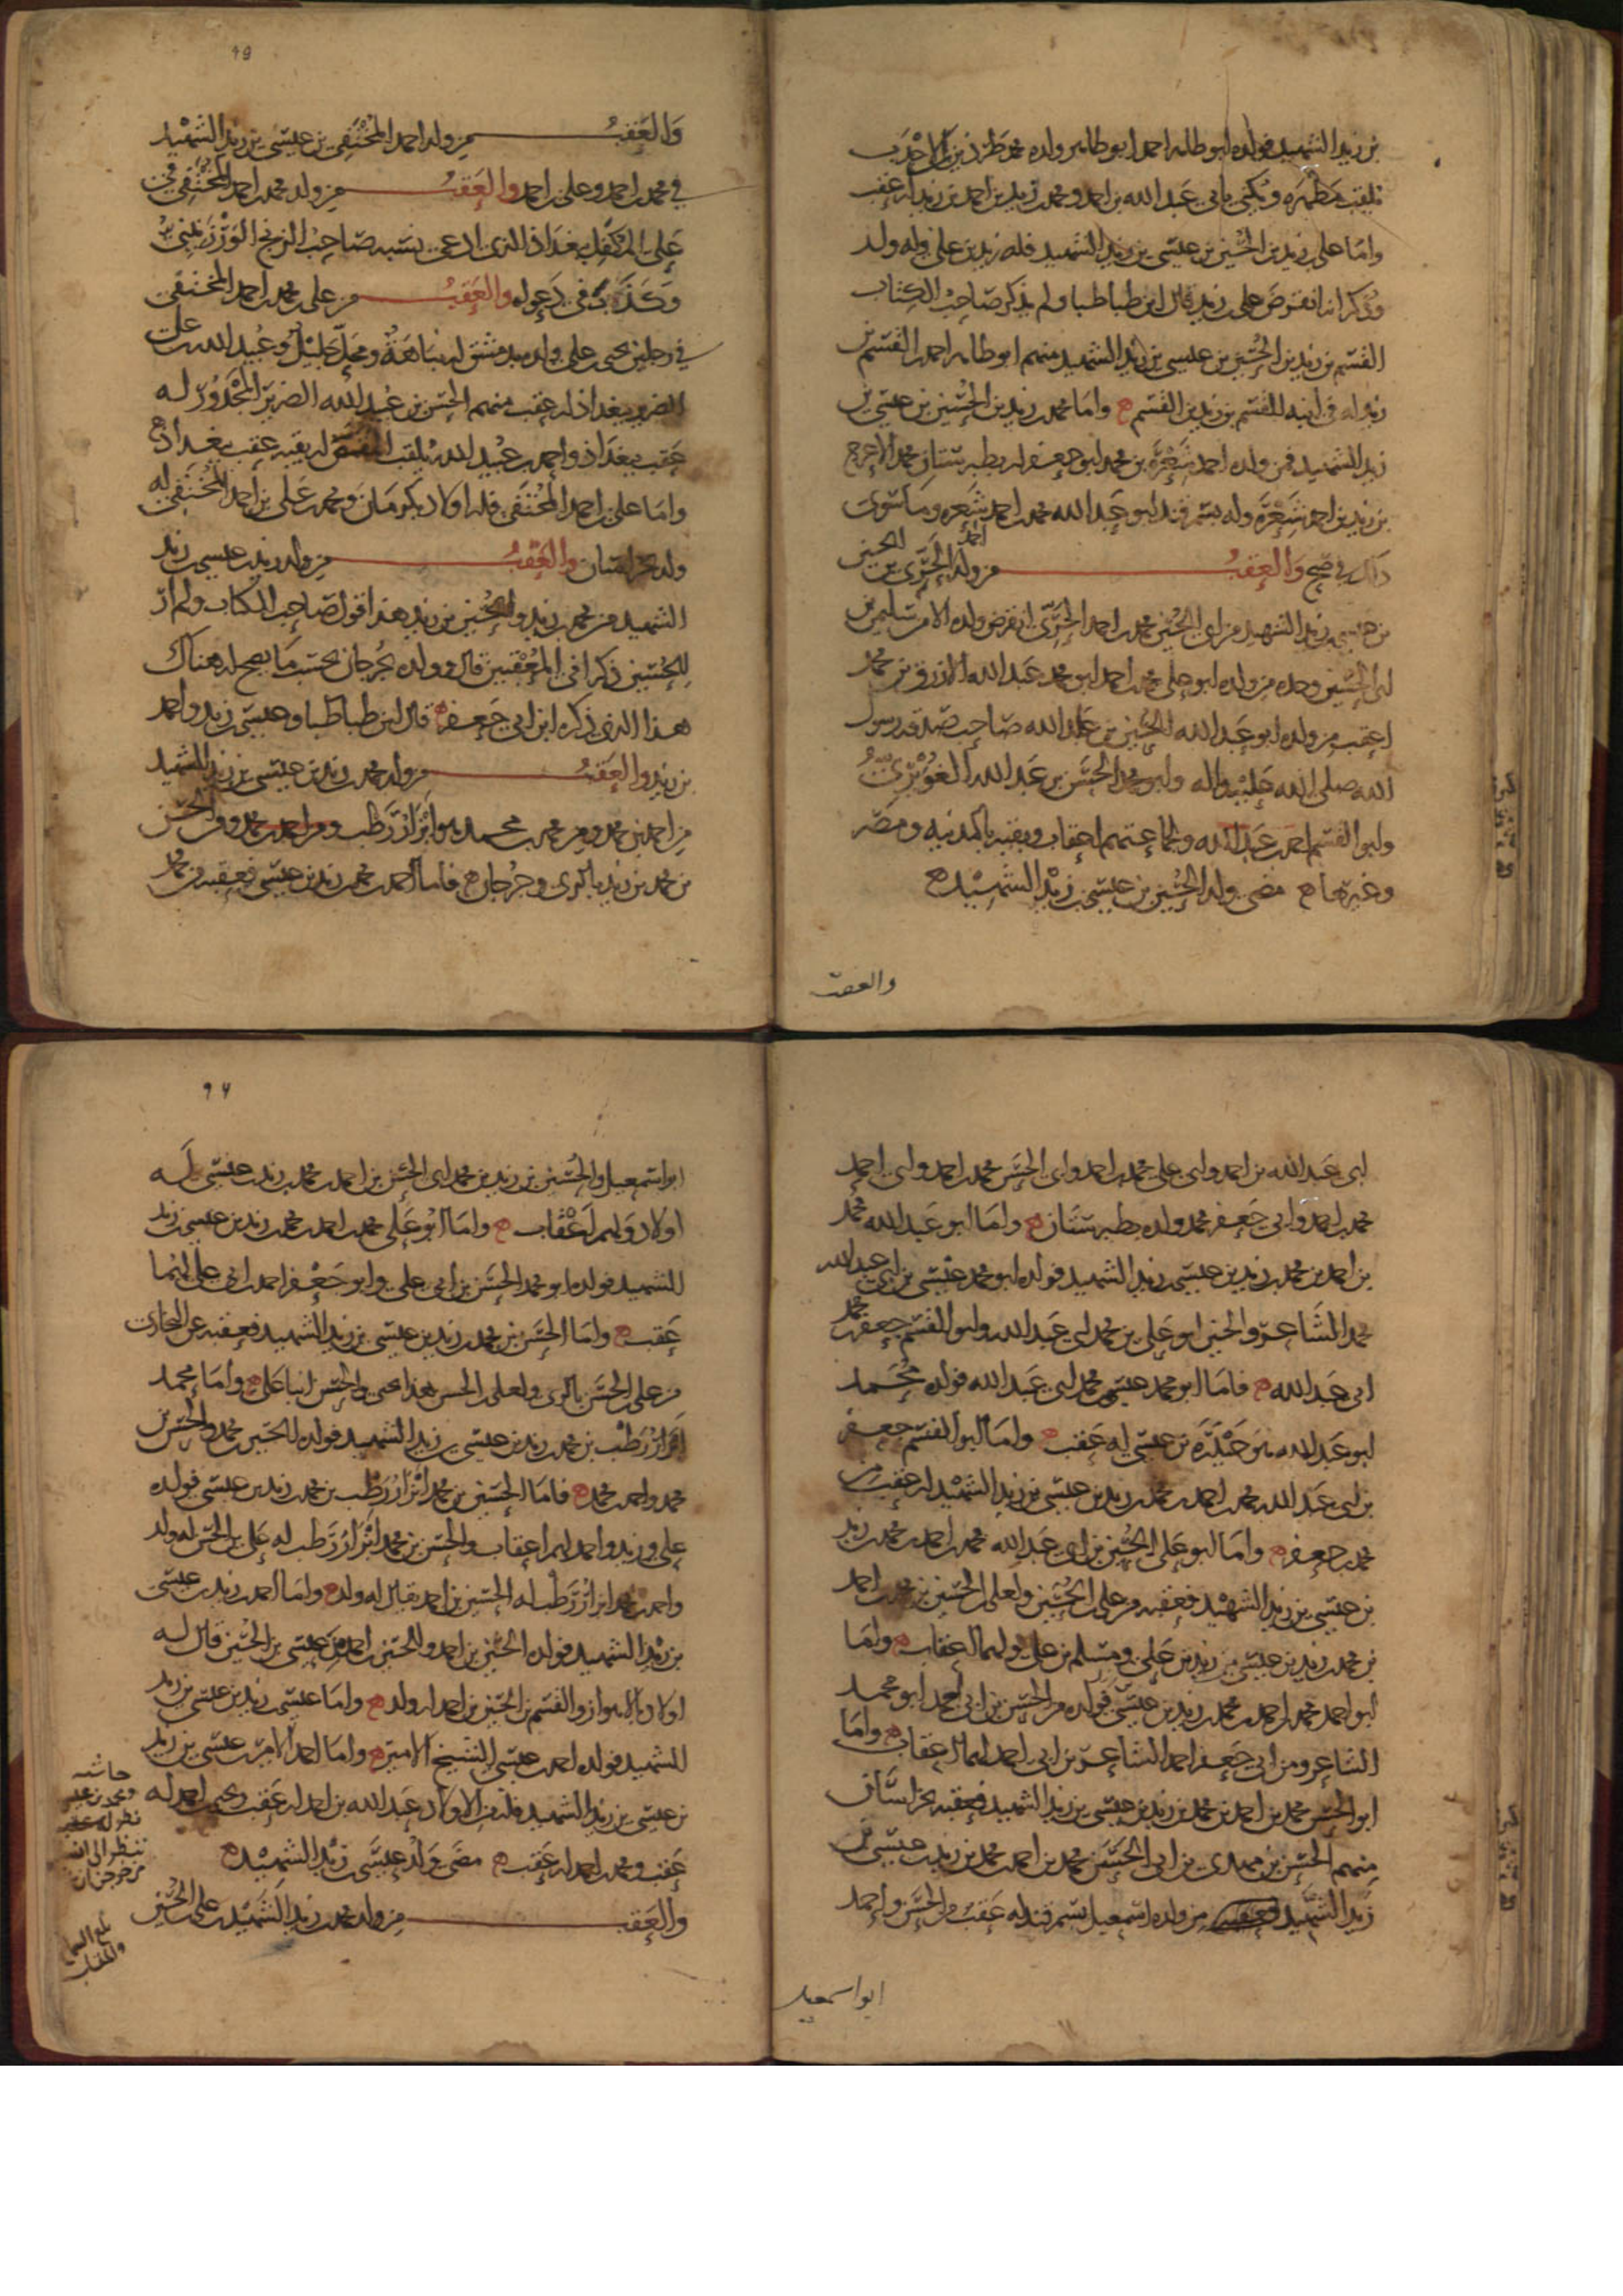 بن زيد الشهيد فولده ابو طاهر احمد ابو طاهر ولده محمد
يلقب مطهره ويكنى بابي عبد الله بن احمد ومحمد بن زيد بن احمد بن زيد له عقب
واما علي بن زيد بن الحسين بن عيسى بن زيد الشهيد فله زيد بن علي وله ولد
وذكر انه انقرض علي بن زيد قال ابن طباطبا ولم يذكر صاحب الكتاب
القسم بن زيد بن الحسين بن عيسى بن زيد الشهيد منهم ابو طاهر احمد بن القسم بن
زيد له في ابنه القسم بن زيد بن القسم ه واما محمد بن زيد بن الحسين بن عيسى بن
زيد الشهيد فمن ولده احمد شعره بن محمد ابو جعفر له بطبرستان محمد الاعرج
بن زيد بن احمد شعره وله بسمرقند ابو عبد الله محمد بن احمد شعره وما سوى
ذلك في صح والعقب من ولد احمد الحري بن الحسين
بن عيسى بن زيد الشهيد من ابي الحسين محمد بن احمد الحري انقرض ولده الا من
ابي الحسين وحده من ولده ابو علي محمد بن احمد ابو محمد عبد الله الازرق بن محمد
اعقب من ولده ابو عبد الله الحسين بن عبد الله صاحب صدقة رسول
الله صلى الله عليه واله وابو محمد الحسن بن عبد الله
وابو القسم احمد بن عبد الله ولجماعتهم اعقاب وبقيه بالمدينه ومصر
وغيرهما ه مضى ولد الحسين بن عيسى بن زيد الشهيد ه
والعقب
٩٩
والعقب من ولد احمد المختفي بن عيسى بن زيد الشهيد
في محمد بن احمد وعلي بن احمد والعقب من ولد محمد بن احمد المختفي في
علي المكفل ببغداذ الذي ادعى نسبه صاحب الزنج الورزنيني
وكذب في دعوله والعقب من علي بن محمد بن احمد المختفي
في رجلين يحيى بن علي ولده بدمشق لهم نباهة ومحل جليل وعبيد الله بن علي
الضرير ببغداذ له عقب منهم الحسن بن عبيد الله الضرير المجدور له
عقب ببغداذ واحمد بن عبيد الله يلقب له بقيه عقب ببغداذ ه
واما علي بن احمد المختفي فله اولاد بكرمان ومحمد بن علي بن احمد المختفي له
ولد بخراسان والعقب من ولد زيد بن عيسى بن زيد
الشهيد من محمد بن زيد والحسين بن زيد هذا قول صاحب الكتاب ولم ار
للحسين ذكرا في المعقبين قال وولده بجرجان بحسب ما يصح له هناك
هذا الذي ذكره ابن ابي جعفر ه قال ابن طباطبا وعيسى بن زيد واحمد
بن زيد والعقب من ولد محمد بن زيد بن عيسى بن زيد الشهيد
من احمد بن محمد ومن محمد بن محمد ومن احمد بن محمد ومن الحسن
بن محمد بن زيد بالري وجرجان ه فاما احمد بن محمد بن زيد بن عيسى فعقبه من محمد
ابي عبد الله بن احمد وابي علي محمد بن احمد وابي الحسن محمد بن احمد وابي احمد
محمد بن احمد وابي جعفر محمد ولده بطبرستان ه واما ابو عبد الله محمد
بن احمد بن محمد بن زيد بن عيسى بن زيد الشهيد فولده ابو محمد عيسى بن ابي عبد الله
محمد الشاعر والحسين ابو علي بن محمد ابي عبد الله وابو القسم جعفر بن محمد
ابي عبد الله ه فاما ابو محمد عيسى بن محمد ابي عبد الله فولده محمد
ابو عبد الله بن عيسى له عقب ه واما ابو القسم جعفر
بن ابي عبد الله محمد بن احمد بن محمد بن زيد بن عيسى بن زيد الشهيد له عقب من
محمد بن جعفر ه واما ابو علي الحسين بن ابي عبد الله محمد بن احمد بن محمد بن زيد
بن عيسى بن زيد الشهيد فعقبه من علي بن الحسين ولعلي بن الحسين بن محمد بن احمد
بن محمد بن زيد بن عيسى بن زيد بن علي ومسلم بن علي ولهما اعقاب ه واما
ابو احمد محمد بن احمد بن محمد بن زيد بن عيسى فولده من الحسين بن ابي احمد ابو محمد
الشاعر ومن ابي جعفر احمد الشاعر بن ابي احمد لهما اعقاب ه واما
ابو الحسن محمد بن احمد بن محمد بن زيد بن عيسى بن زيد الشهيد فعقبه بخراسان
منهم الحسن بن مهدي بن ابي الحسن محمد بن احمد بن محمد بن زيد بن عيسى بن
زيد الشهيد من ولده اسمعيل بسمرقند له عقب ومن الحسن واحمد
ابو اسمعيل
ابو اسمعيل والحسين بن زيد بن محمد ابي الحسن بن احمد بن محمد بن زيد بن عيسى له
اولاد ولهم اعقاب ه واما ابو علي محمد بن احمد بن محمد بن زيد بن عيسى بن زيد
الشهيد فولده ابو محمد الحسن بن ابي علي وابو جعفر احمد بن ابي علي لهما
عقب ه واما الحسن بن محمد بن زيد بن عيسى بن زيد الشهيد فعقبه
من علي بن الحسن بالري ولعلي بن الحسن هذا يحيى والحسن ابنا علي ه واما محمد
بن محمد بن زيد بن عيسى بن زيد الشهيد فولده الحسين بن محمد والحسن بن
محمد واحمد بن محمد ه فاما الحسين بن محمد بن محمد بن زيد بن عيسى فولده
علي وزيد واحمد لهم اعقاب والحسن بن محمد له علي بن الحسن له ولد
واحمد بن محمد له الحسين بن احمد يقال له ولد ه واما احمد بن زيد بن عيسى
بن زيد الشهيد فولده الحسين بن احمد والحسين بن احمد من عيسى بن الحسين قال له
اولاد بالاهواز والقسم بن الحسين بن احمد له ولد ه واما عيسى بن زيد بن عيسى بن زيد
الشهيد فولده احمد بن عيسى الشيخ الامير ه واما احمد الامير بن عيسى بن زيد
بن عيسى بن زيد الشهيد فله من الاولاد عبد الله بن احمد له عقب ويحيى بن احمد له
عقب ومحمد بن احمد له عقب ه مضى ولد عيسى بن زيد الشهيد ه
والعقب من ولد محمد بن زيد الشهيد بن علي بن الحسين
حاشيه